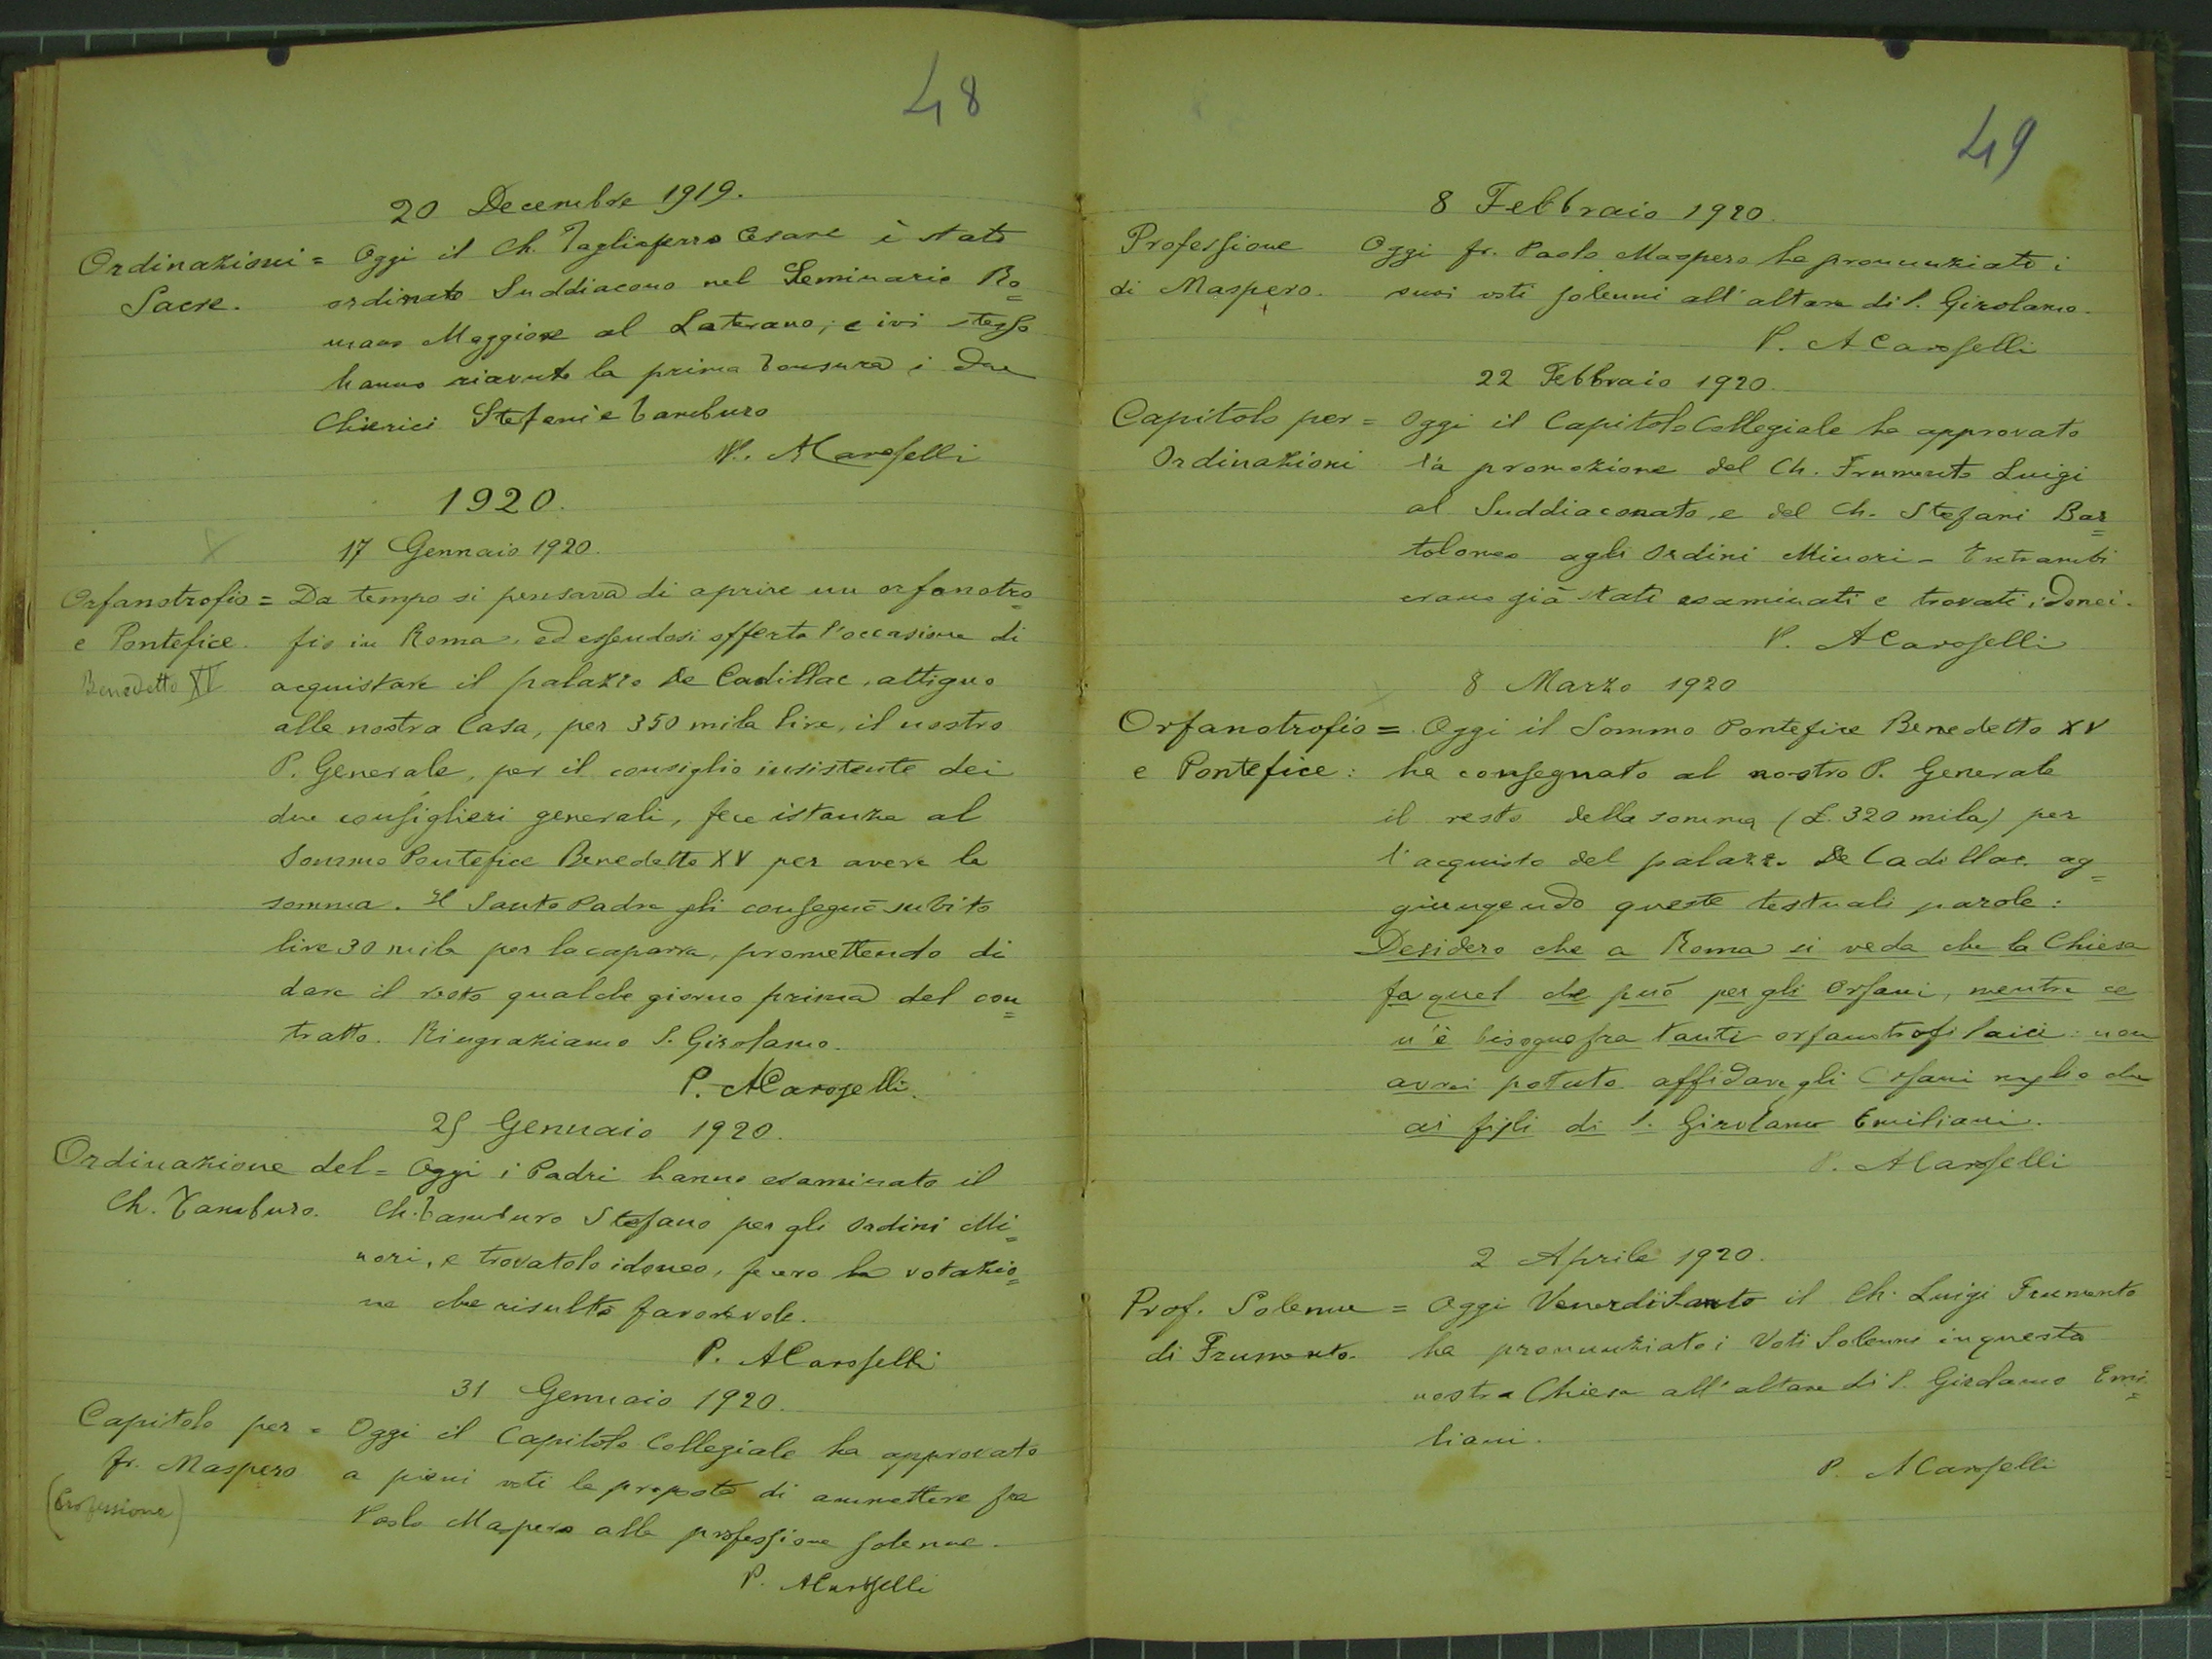 48
20 Decembre 1919.
Ordinazioni = Oggi il Ch. Tagliaferro Cesare è stato
Sacre. ordinato Suddiacono nel Seminario Ro=
mano Maggiore al Laterano; e ivi stesso
hanno ricevuto la prima Tonsura i due
Chierici Stefani e Tamburo
P. A Caroselli
1920.
17 Gennaio 1920.
Orfanotrofio = Da tempo si pensava di aprire un orfanotro=
e Pontefice. fio in Roma, ed essendosi offerta l'occasione di
Benedetto XV acquistare il palazzo De Cadillac, attiguo
alla nostra Casa, per 350 mila lire, il nostro
P. Generale, per il consiglio insistente dei
due consiglieri generali, fece istanza al
Sommo Pontefice Benedetto XV per avere la
somma. Il Santo Padre gli consegnò subito
lire 30 mila per la caparra, promettendo di
dare il resto qualche giorno prima del con=
tratto. Ringraziamo S. Girolamo.
P. A Caroselli.
25 Gennaio 1920.
Ordinazione del = Oggi i Padri hanno esaminato il
Ch. Tamburo. Ch. Tamburo Stefano per gli Ordini Mi=
nori, e trovatolo idoneo, fecero la votazio=
ne che risultò favorevole.
P. A Caroselli
31 Gennaio 1920.
Capitolo per = Oggi il Capitolo Collegiale ha approvato
fr. Maspero a pieni voti la proposta di ammettere fra
(Professione) Paolo Maspero alla professione solenne.
P. A Caroselli
49
8 Febbraio 1920.
Professione Oggi fr. Paolo Maspero ha pronunziato i
di Maspero. suoi voti solenni all'altare di S. Girolamo.
P. A Caroselli
22 Febbraio 1920.
Capitolo per = Oggi il Capitolo Collegiale ha approvato
Ordinazioni la promozione del Ch. Frumento Luigi
al Suddiaconato, e del Ch. Stefani Bar=
tolomeo agli Ordini Minori - Entrambi
erano già stati esaminati e trovati idonei.
P. A Caroselli
8 Marzo 1920
Orfanotrofio = Oggi il Sommo Pontefice Benedetto XV
e Pontefice: ha consegnato al nostro P. Generale
il resto della somma (L. 320 mila) per
l'acquisto del palazzo De Cadillac. ag=
giungendo queste testuali parole:
Desidero che a Roma si veda che la Chiesa
fa quel che può per gli Orfani, mentre ce
n'è bisogno fra tanti orfanotrofi laici: non
avrei potuto affidare gli Orfani meglio che
ai figli di S. Girolamo Emiliani.
P. A Caroselli
2 Aprile 1920.
Prof. Solenne = Oggi Venerdì Santo il Ch. Luigi Frumento
di Frumento. ha pronunziato i Voti Solenni in questa
nostra Chiesa all'altare di S. Girolamo Emi=
liani.
P. A Caroselli